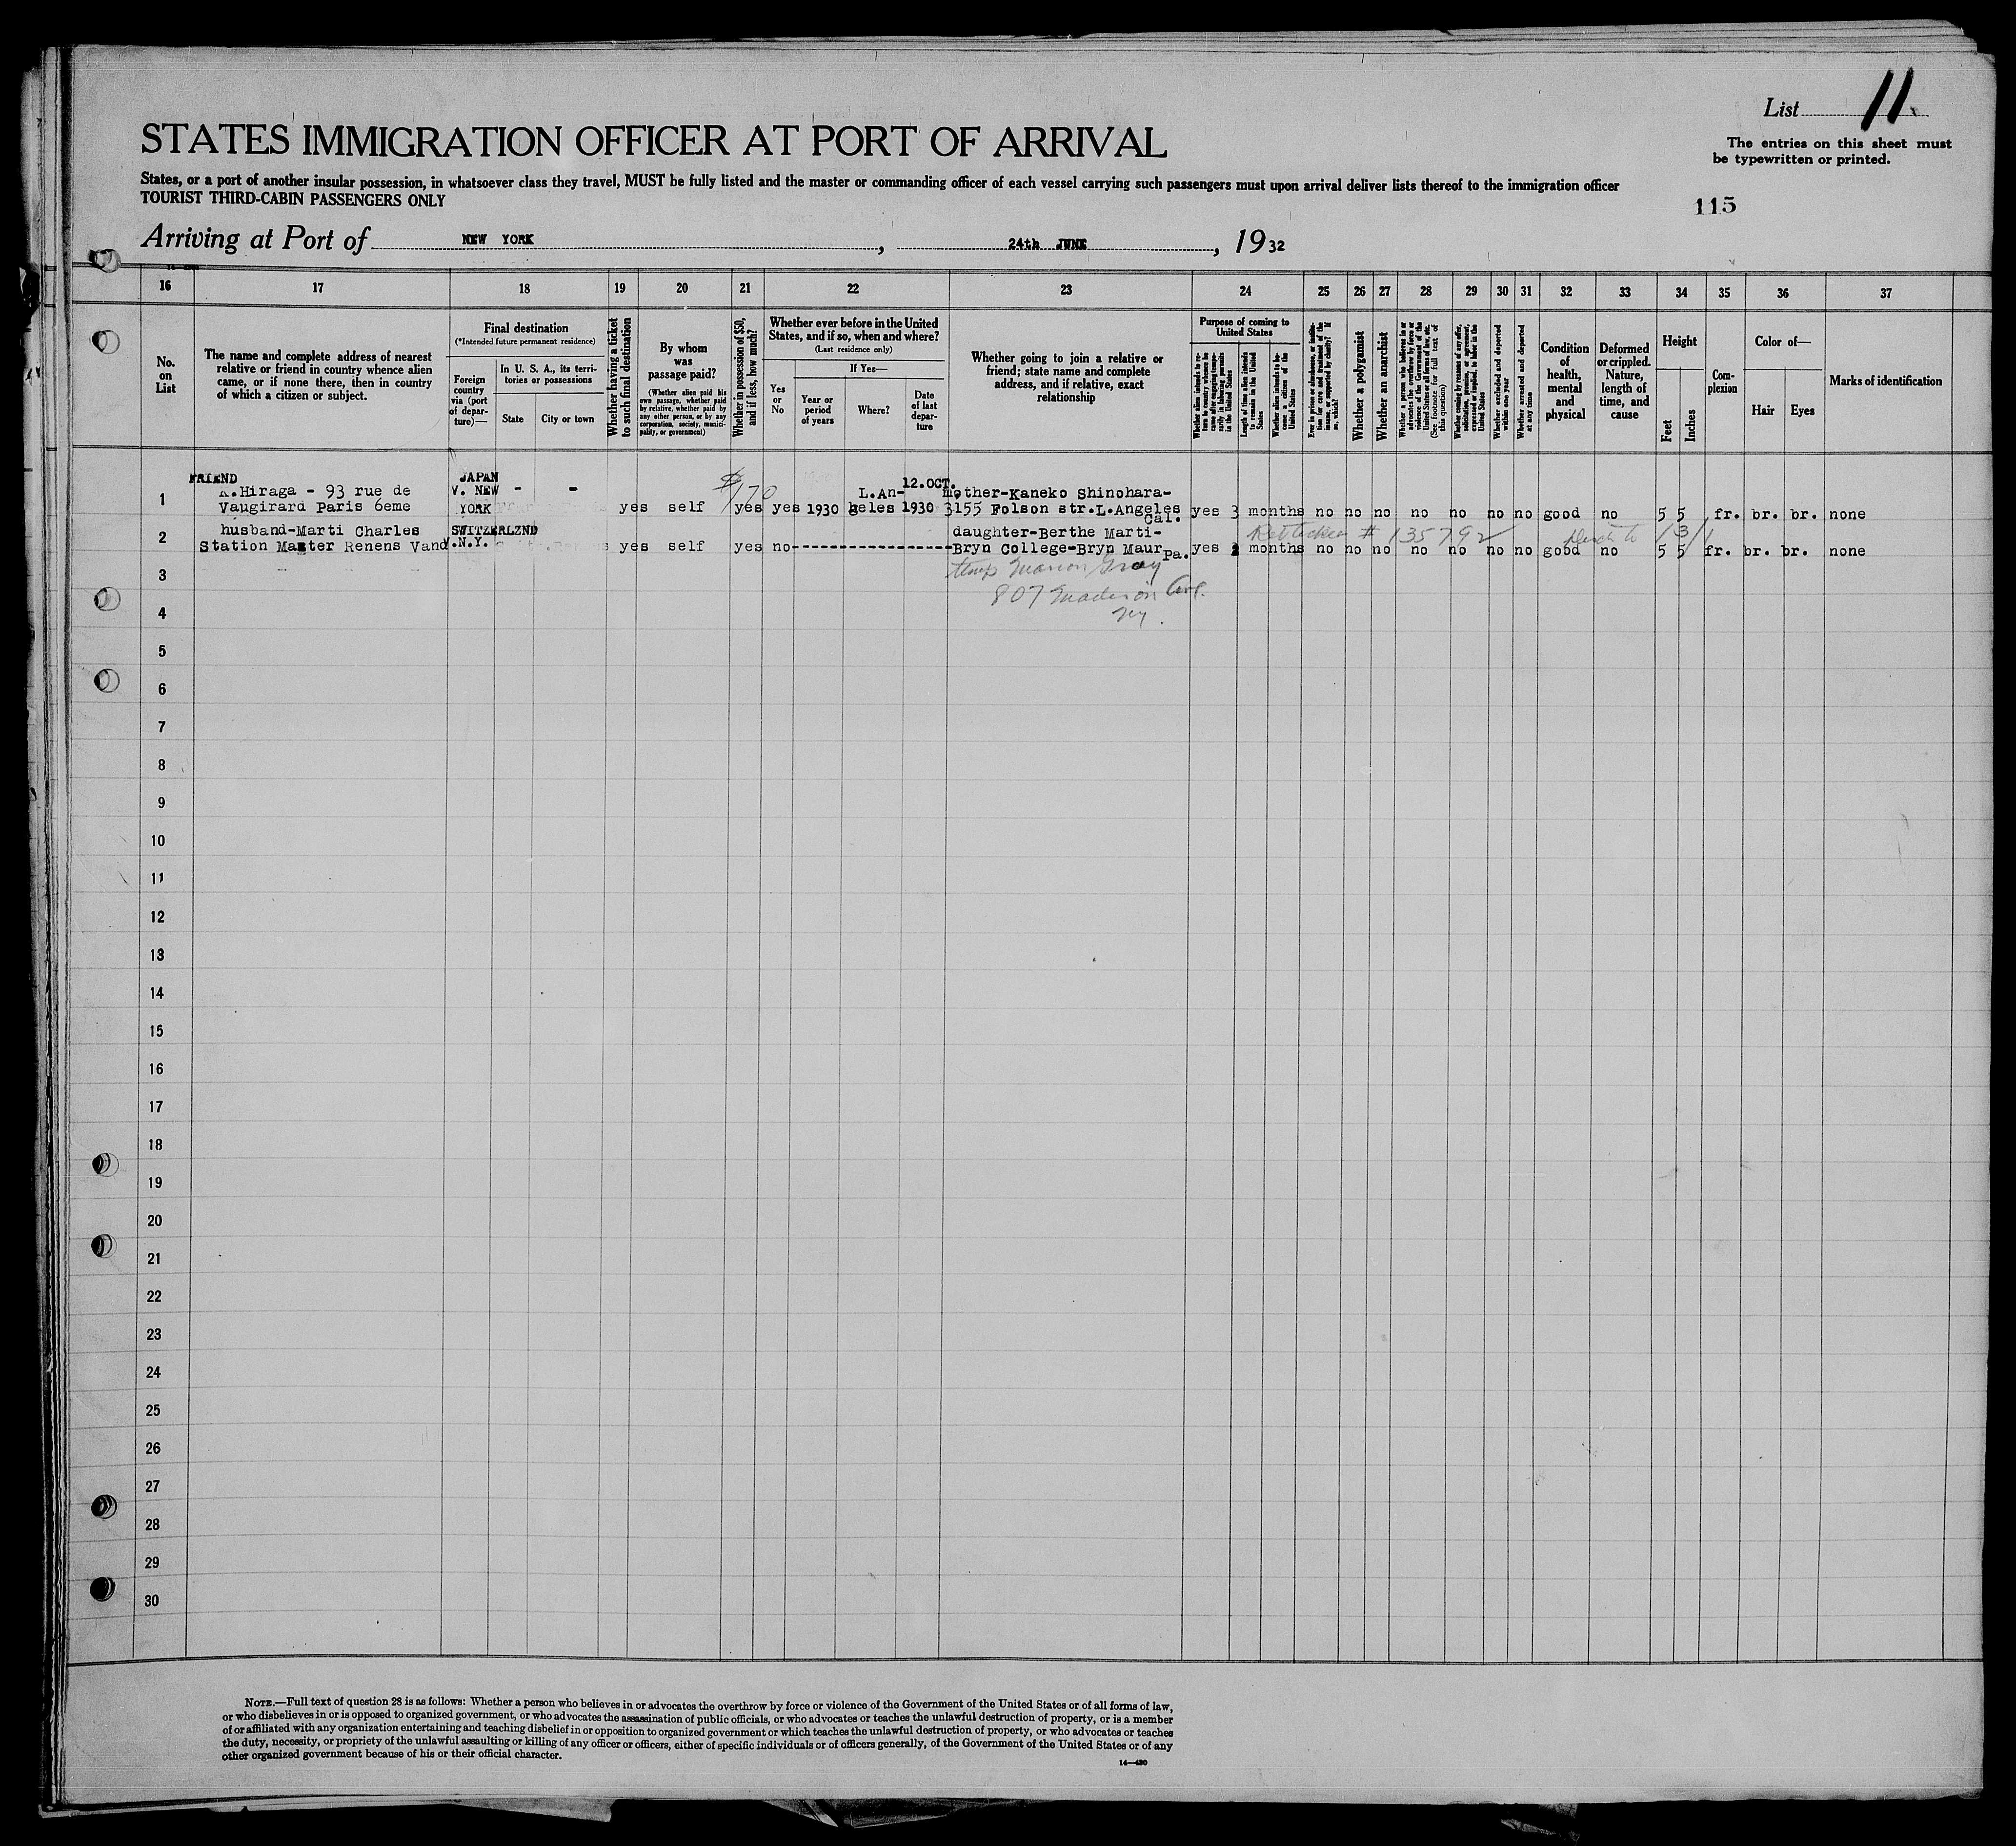 List 11
STATES IMMIGRATION OFFICER AT PORT OF ARRIVAL
The entries on this sheet must
be typewritten or printed.
States, or a port of another insular possession, in whatsoever class they travel, MUST be fully listed and the master or commanding officer of each vessel carrying such passengers must upon arrival deliver lists thereof to the immigration officer
TOURIST THIRD-CABIN PASSENGERS ONLY
115
Arriving at Port of NEW YORK, 24th JUNE, 1932
16 17 18 19 20 21 22 23 24 25 26 27 28 29 30 31 32 33 34 35 36 37
No.
on
List
The name and complete address of nearest
relative or friend in country whence alien
came, or if none there, then in country
of which a citizen or subject.
Final destination
(*Intended future permanent residence)
Foreign
country
via (port
of depar-
ture)—
In U. S. A., its terri-
tories or possessions
State
City or town
Whether having a ticket
to such final destination
By whom
was
passage paid?
(Whether alien paid his
own passage, whether paid
by relative, whether paid by
any other person, or by any
corporation, society, munici-
pality, or government)
Whether in possession of $50,
and if less, how much?
Whether ever before in the United
States, and if so, when and where?
(Last residence only)
Yes
or
No
If Yes—
Year or
period
of years
Where?
Date
of last
depar-
ture
Whether going to join a relative or
friend; state name and complete
address, and if relative, exact
relationship
Purpose of coming to
United States
Whether alien intends to re-
turn to country whence he
came after engaging tempo-
rarily in laboring pursuits
in the United States
Length of time alien intends
to remain in the United
States
Whether alien intends to be-
come a citizen of the
United States
Ever in prison or almshouse, or institu-
tion for care and treatment of the
insane, or supported by charity? If
so, which?
Whether a polygamist
Whether an anarchist
Whether a person who believes in or
advocates the overthrow by force or
violence of the Government of the
United States or all forms of law, etc.
(See footnote for full text of
this question)
Whether coming by reason of any offer,
solicitation, promise, or agreement,
expressed or implied, to labor in the
United States
Whether excluded and deported
within one year
Whether arrested and deported
at any time
Condition
of
health,
mental
and
physical
Deformed
or crippled.
Nature,
length of
time, and
cause
Height
Feet
Inches
Com-
plexion
Color of—
Hair
Eyes
Marks of identification
FRIEND JAPAN $170 12.OCT.
K.Hiraga - 93 rue de V. NEW - - L.An- mother-Kaneko Shinohara-
1 Vaugirard Paris 6eme YORK yes self yes yes 1930 geles 1930 3155 Folson str.L.Angeles Cal. yes 3 months no no no no no no no good no 5 5 fr. br. br. none
husband-Marti Charles SWITZERLZND daughter-Berthe Marti- # 135792
2 Station Master Renens Vand V.N.Y. yes self yes no------------------Bryn College-Bryn Maur Pa. yes 2 months no no no no no no no good no 5 5 fr. br. br. none
3 Marion Gray
807 Madison Ave.
4 NY.
5
6
7
8
9
10
11
12
13
14
15
16
17
18
19
20
21
22
23
24
25
26
27
28
29
30
NOTE.—Full text of question 28 is as follows: Whether a person who believes in or advocates the overthrow by force or violence of the Government of the United States or of all forms of law,
or who disbelieves in or is opposed to organized government, or who advocates the assassination of public officials, or who advocates or teaches the unlawful destruction of property, or is a member
of or affiliated with any organization entertaining and teaching disbelief in or opposition to organized government or which teaches the unlawful destruction of property, or who advocates or teaches
the duty, necessity, or propriety of the unlawful assaulting or killing of any officer or officers, either of specific individuals or of officers generally, of the Government of the United States or of any
other organized government because of his or their official character.
14—430